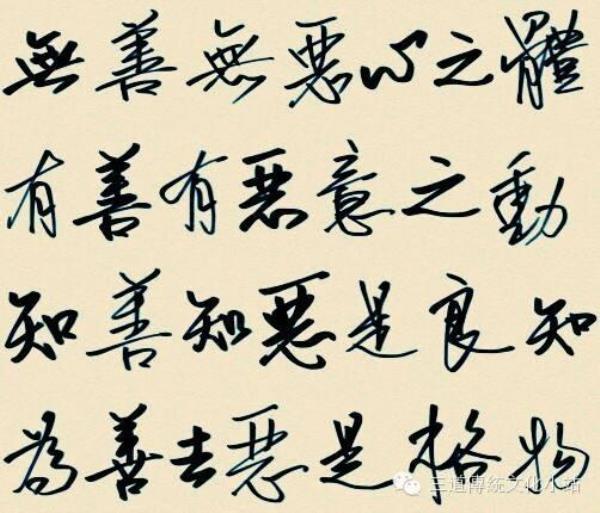 無善無惡心之體
有善有惡意之動
知善知惡是良知
為善去惡是格物
三道傳統文化小站